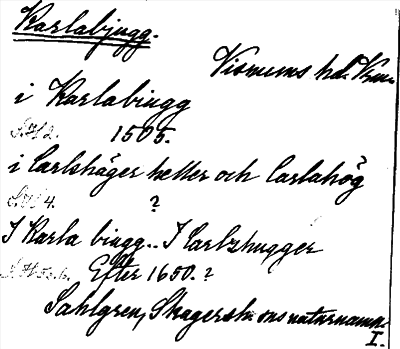 Karlabjugg.
Visnums hd. Vrm.
i Karlabiugg
S.H 2. 1505.
i Carlshäger heller och Carlahög
4. ?
I Karla biugg.. I Carlzhugger
Efter 1650. ?
Sahlgren, Skagersh. ons naturnamn
I.